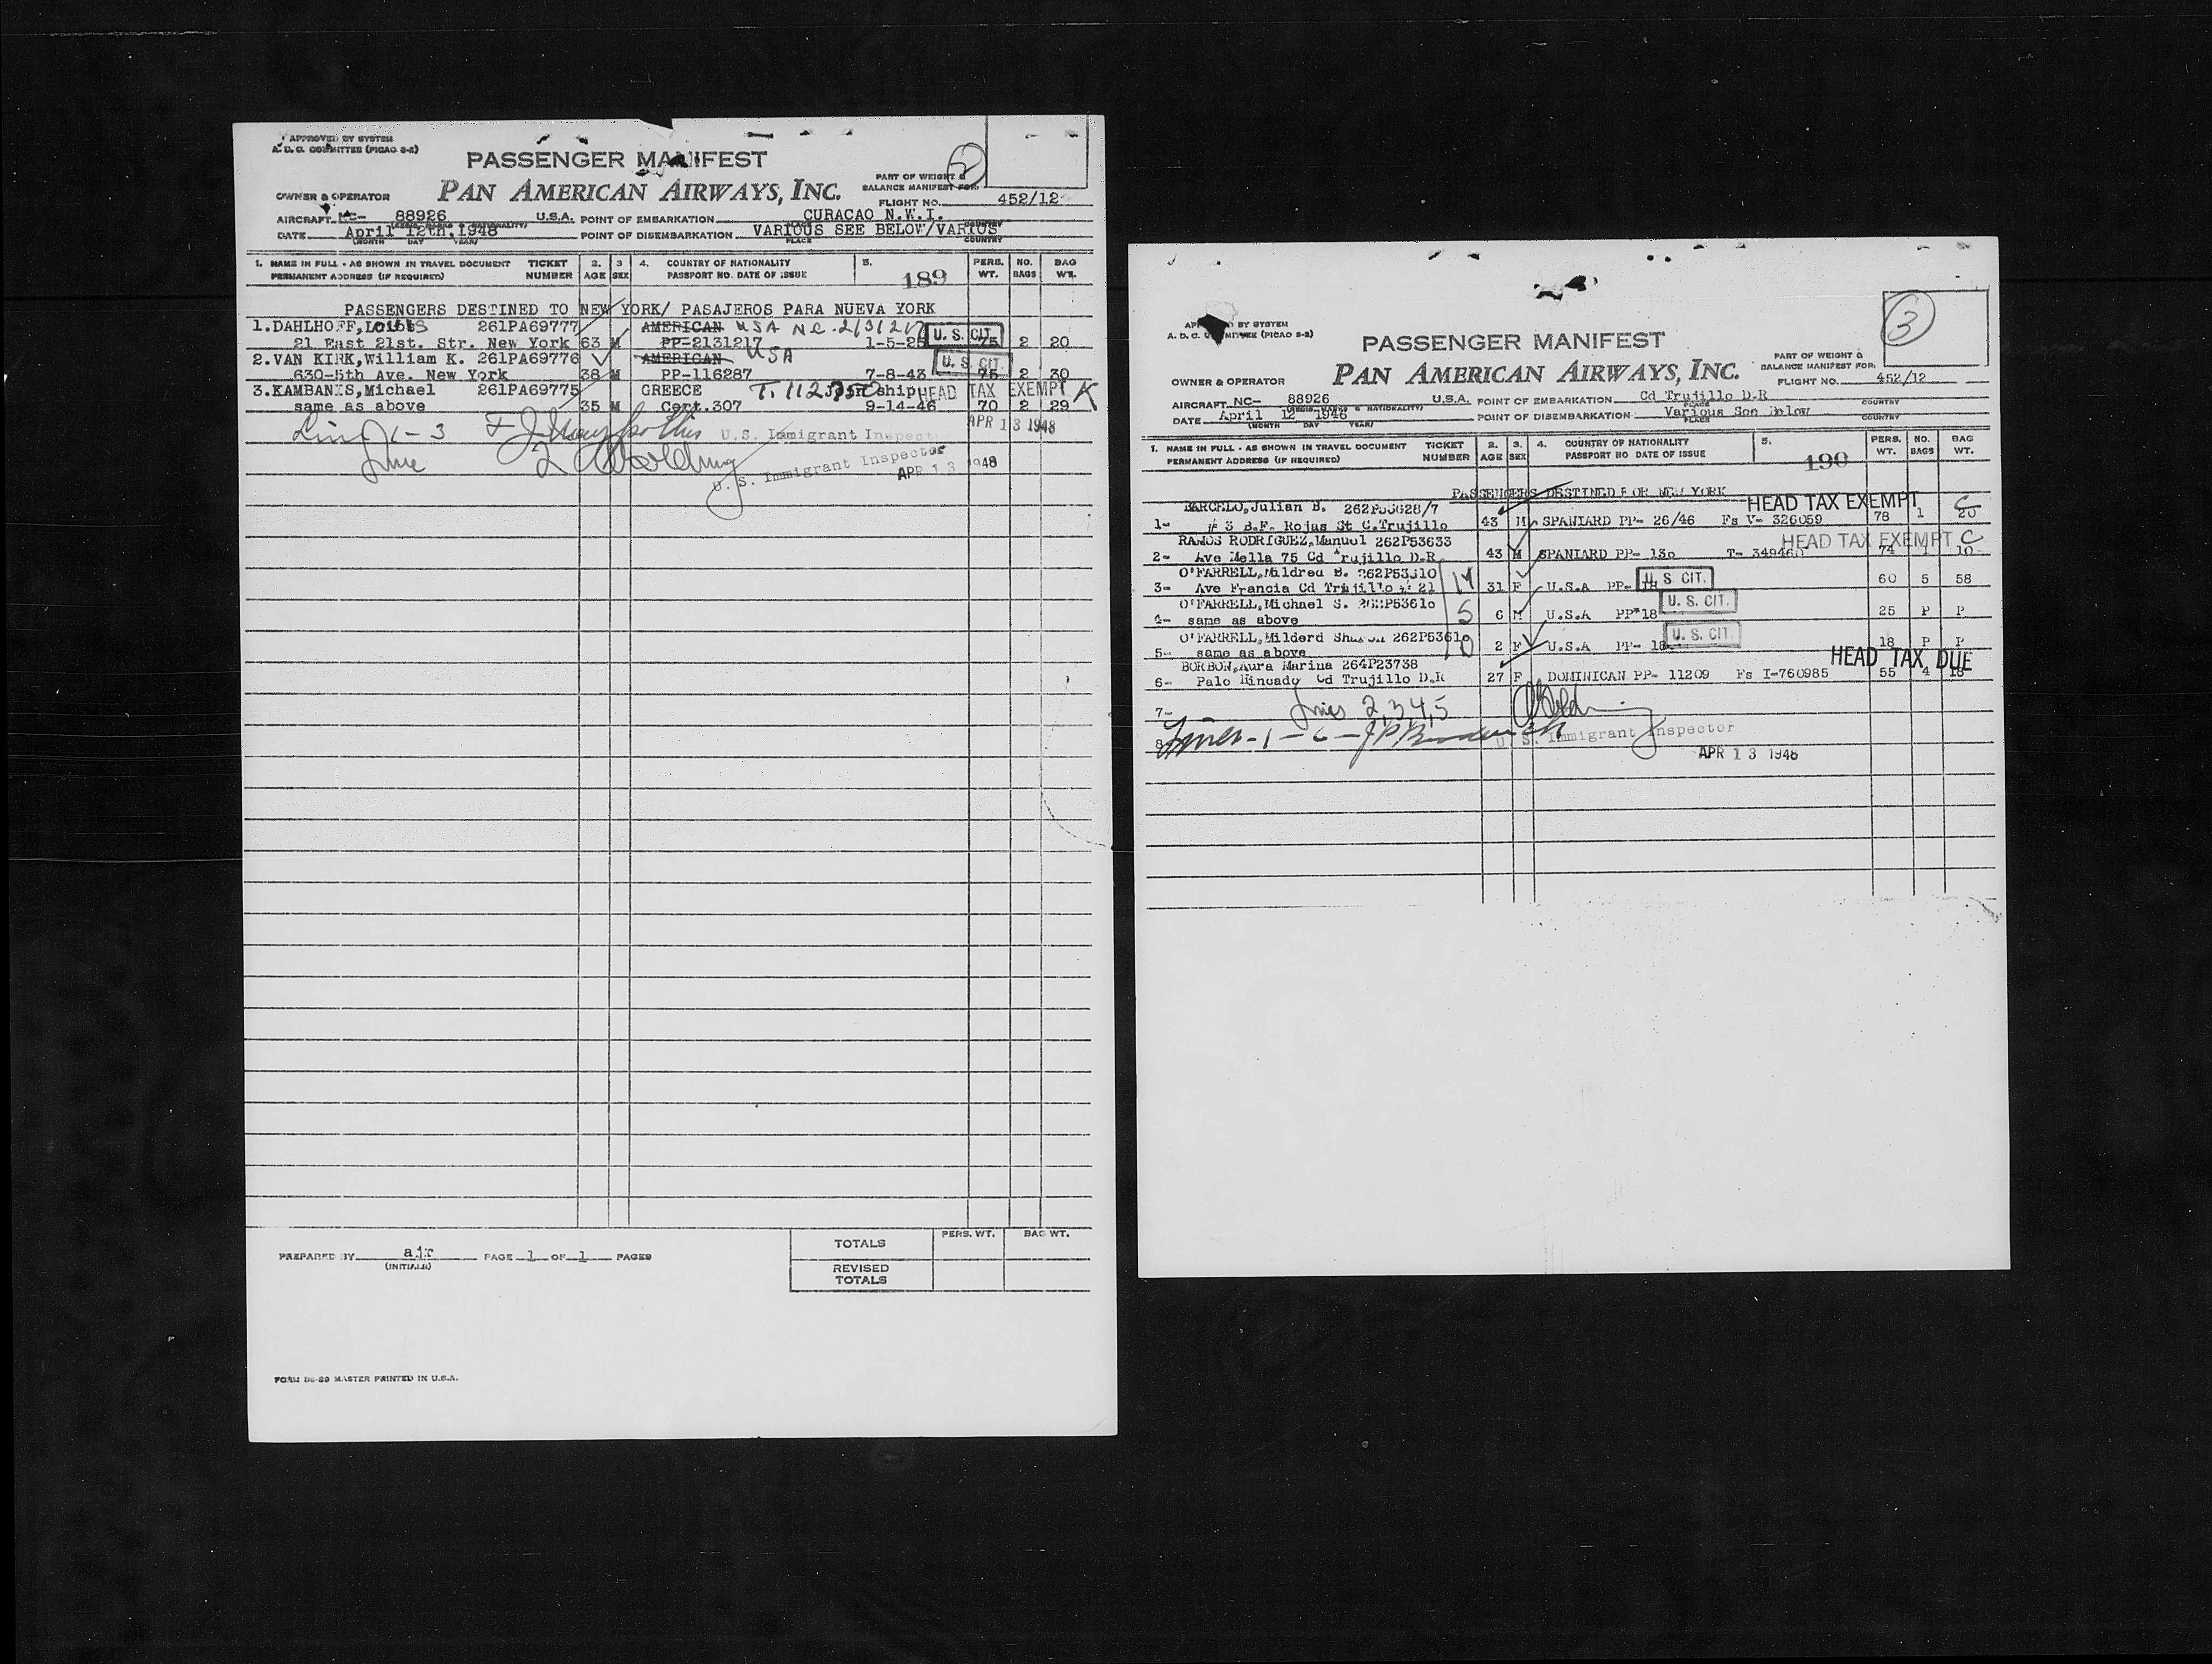 APPROVED BY SYSTEM
A. D. C. COMMITTEE (PICAO S-2)
PASSENGER MANIFEST
2
OWNER & OPERATOR PAN AMERICAN AIRWAYS, INC.
PART OF WEIGHT &
BALANCE MANIFEST FOR:
FLIGHT NO. 452/12
AIRCRAFT NC- 88926 U.S.A. POINT OF EMBARKATION CURACAO N.W.I.
DATE April 12th,1948 POINT OF DISEMBARKATION VARIOUS SEE BELOW/VARIOS
(MONTH DAY YEAR) PLACE COUNTRY
1. NAME IN FULL - AS SHOWN IN TRAVEL DOCUMENT TICKET 2. 3 4. COUNTRY OF NATIONALITY 5. PERS. NO. BAG
PERMANENT ADDRESS (IF REQUIRED) NUMBER AGE SEX PASSPORT NO. DATE OF ISSUE 189 WT. BAGS WT.
PASSENGERS DESTINED TO NEW YORK/ PASAJEROS PARA NUEVA YORK
1.DAHLHOFF, 261PA69777 AMERICAN USA NC-2131217 U. S. CIT.
21 East 21st. Str. New York 63 M PP-2131217 1-5-25 75 2 20
2.VAN KIRK,William K. 261PA69776 AMERICAN USA U. S. CIT.
630-5th Ave. New York 38 M PP-116287 7-8-43 2 30
3.KAMBANIS,Michael 261PA69775 GREECE ship HEAD TAX EXEMPT K
same as above 35 M Cert.307 9-14-46 70 2 29
1-3 U.S. Immigrant Inspector APR 13 1948
U. S. Immigrant Inspector
APR 13 1948
PREPARED BY air PAGE 1 OF 1 PAGES
(INITIALS)
PERS. WT. BAG WT.
TOTALS
REVISED
TOTALS
FORM 86-89 MASTER PRINTED IN U.S.A.
BY SYSTEM
A. D. C. COMMITTEE (PICAO S-2)
3
PASSENGER MANIFEST
OWNER & OPERATOR PAN AMERICAN AIRWAYS, INC.
PART OF WEIGHT &
BALANCE MANIFEST FOR:
FLIGHT NO. 452/12
AIRCRAFT NC- 88926 U.S.A. POINT OF EMBARKATION Cd Trujillo D.R
DATE April 12 1948 POINT OF DISEMBARKATION Various See Below
(MONTH DAY YEAR) PLACE COUNTRY
1. NAME IN FULL - AS SHOWN IN TRAVEL DOCUMENT TICKET 2. 3. 4. COUNTRY OF NATIONALITY 5. PERS. NO. BAG
PERMANENT ADDRESS (IF REQUIRED) NUMBER AGE SEX PASSPORT NO DATE OF ISSUE 190 WT. BAGS WT.
PASSENGERS DESTINED FOR NEW YORK
BARCELO,Julian B. HEAD TAX EXEMPT C
1- # 3 B.F. Rojas St C.Trujillo 43 M SPANIARD PP- 26/46 Fs V- 326059 78 1 20
RAMOS RODRIGUEZ,Manuel 262P53633 HEAD TAX EXEMPT C
2- Ave Mella 75 Cd Trujillo D.R. 43 M SPANIARD PP- 74 1 10
O'FARRELL,Mildred B. 262P53610 U. S. CIT.
3- Ave Francia Cd Trujillo # 21 31 F U.S.A PP- 60 5 58
O'FARRELL,Michael S. 262P53610 U. S. CIT.
4- same as above 6 M U.S.A PP-18 25 P P
O'FARRELL,Milderd 262P53610 U. S. CIT.
5- same as above 2 F U.S.A PP- 18 18 P P
BORBON,Aura Marina 264P23738 HEAD TAX DUE
6- Palo Hincado Cd Trujillo D.R 27 F DOMINICAN PP- 11209 Fs I-760985 55 4 18
7- Lines 2,3,4,5
8- Lines - 1 - 6 -
U. S. Immigrant Inspector
APR 13 1948